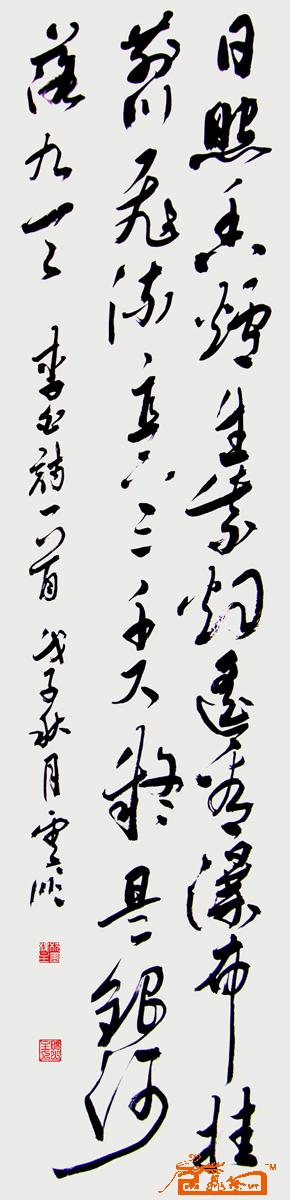 日照香炉生紫烟遥看瀑布挂
前川飞流直下三千尺疑是银河
落九天 李白诗一首 戊子秋月云峰